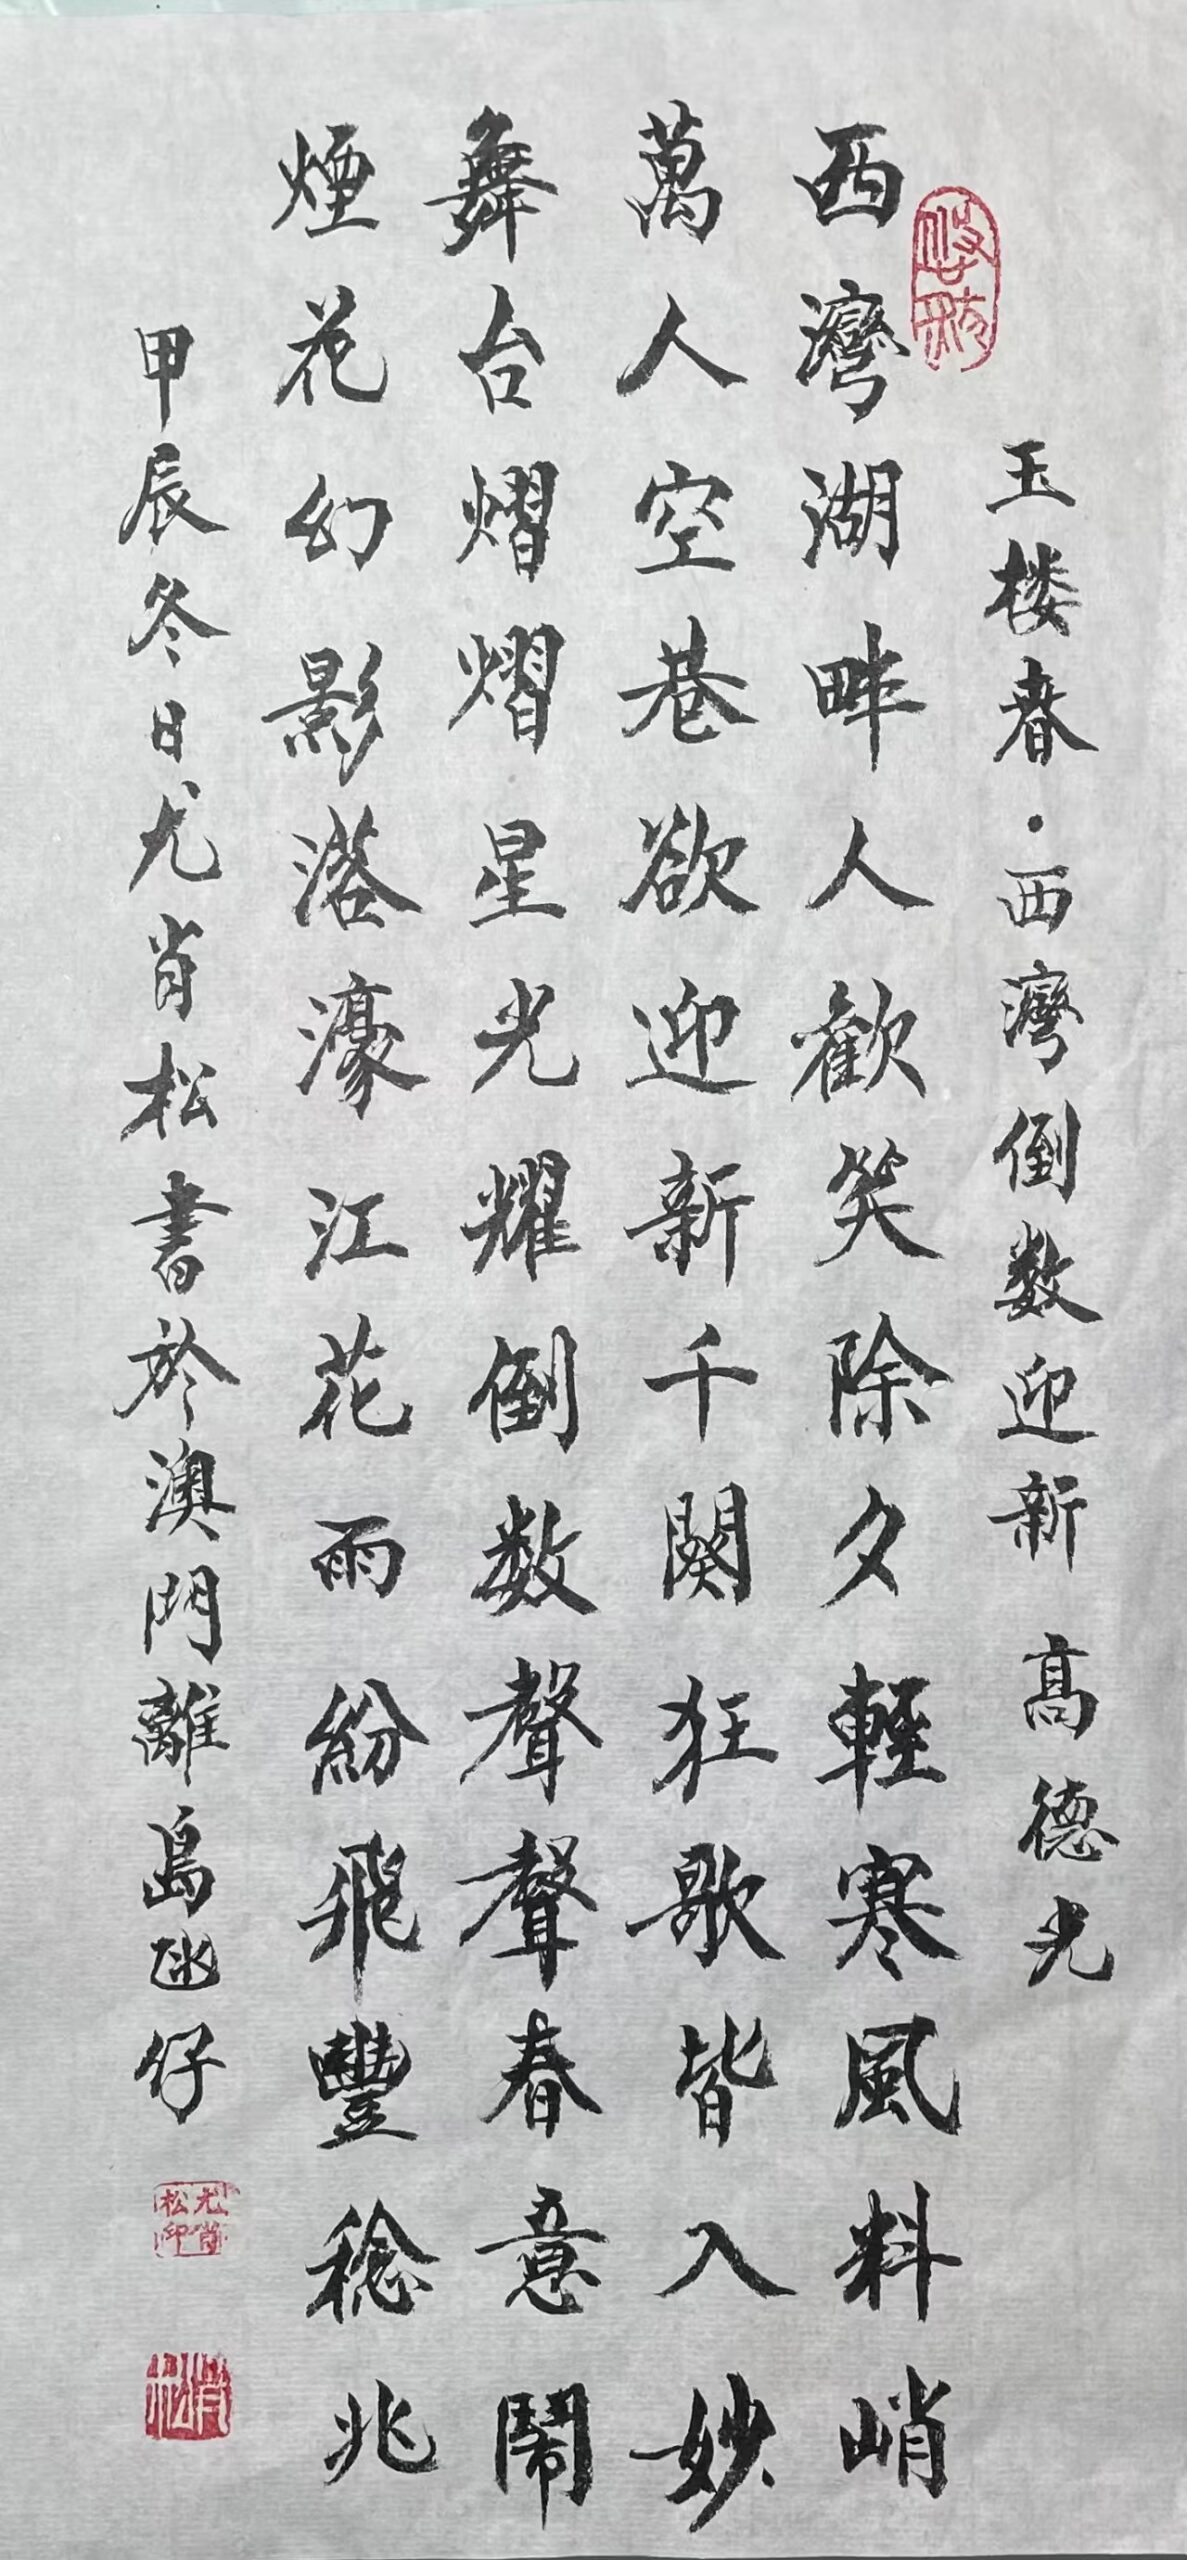 玉楼春·西灣倒数迎新 高德光
西灣湖畔人歡笑除夕輕寒風料峭
萬人空巷欲迎新千闋狂歌皆入妙
舞台熠熠星光耀倒数聲聲春意鬧
煙花幻影落濠江花雨紛飛豐稔兆
甲辰冬日尤肖松書於澳門離島氹仔
尤肖松印
肖松